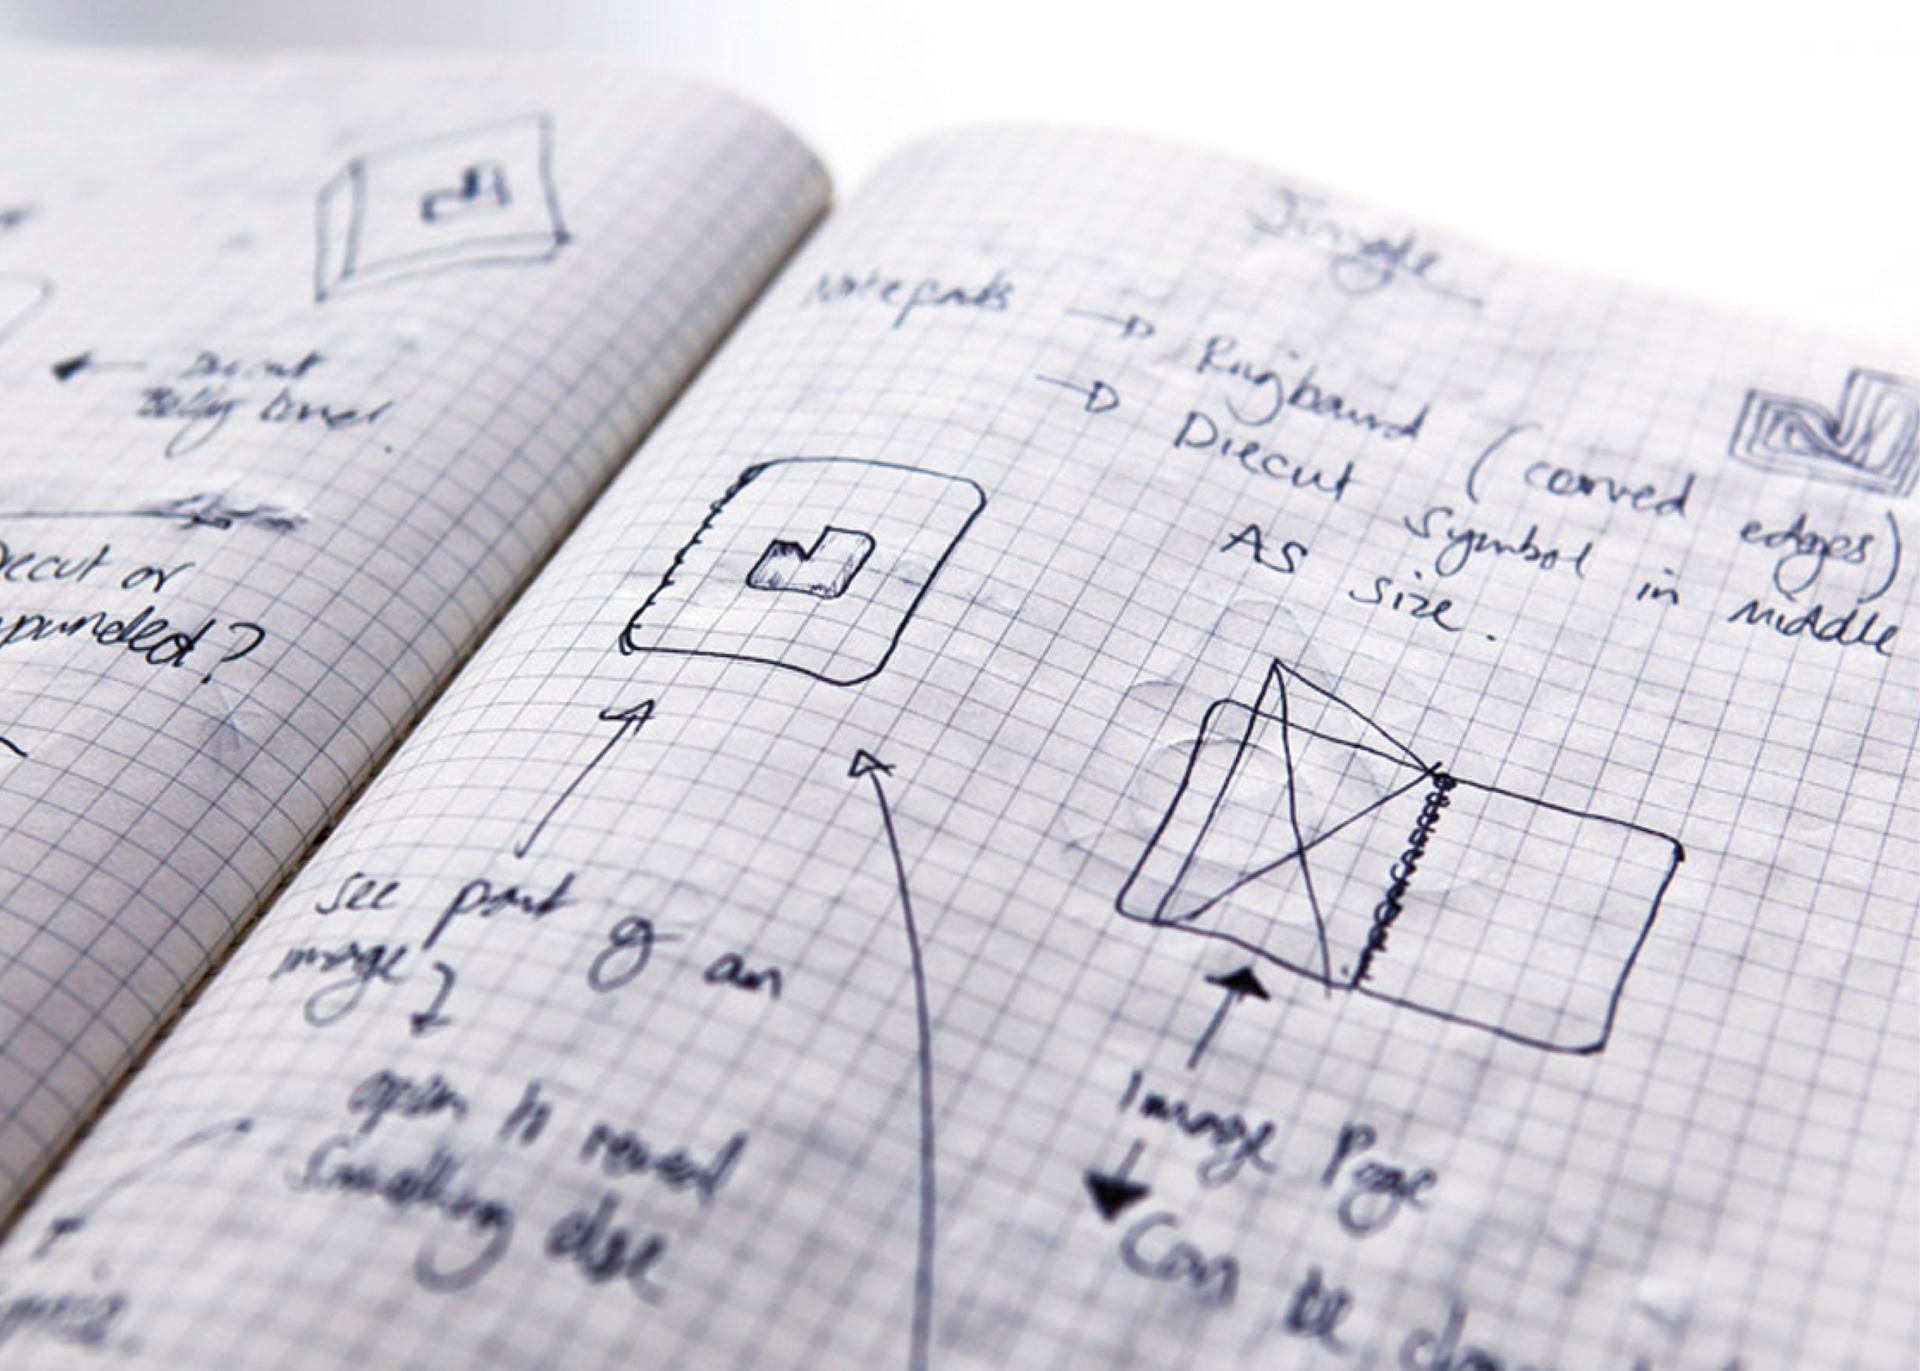 Diecut
Belly band.
Diecut or
expanded?
Jungle
Notepads → Ringbound (corved edges)
→ Diecut symbol in middle
AS size.
see part of an
image
open to reveal
Something else
Image Page
Can be